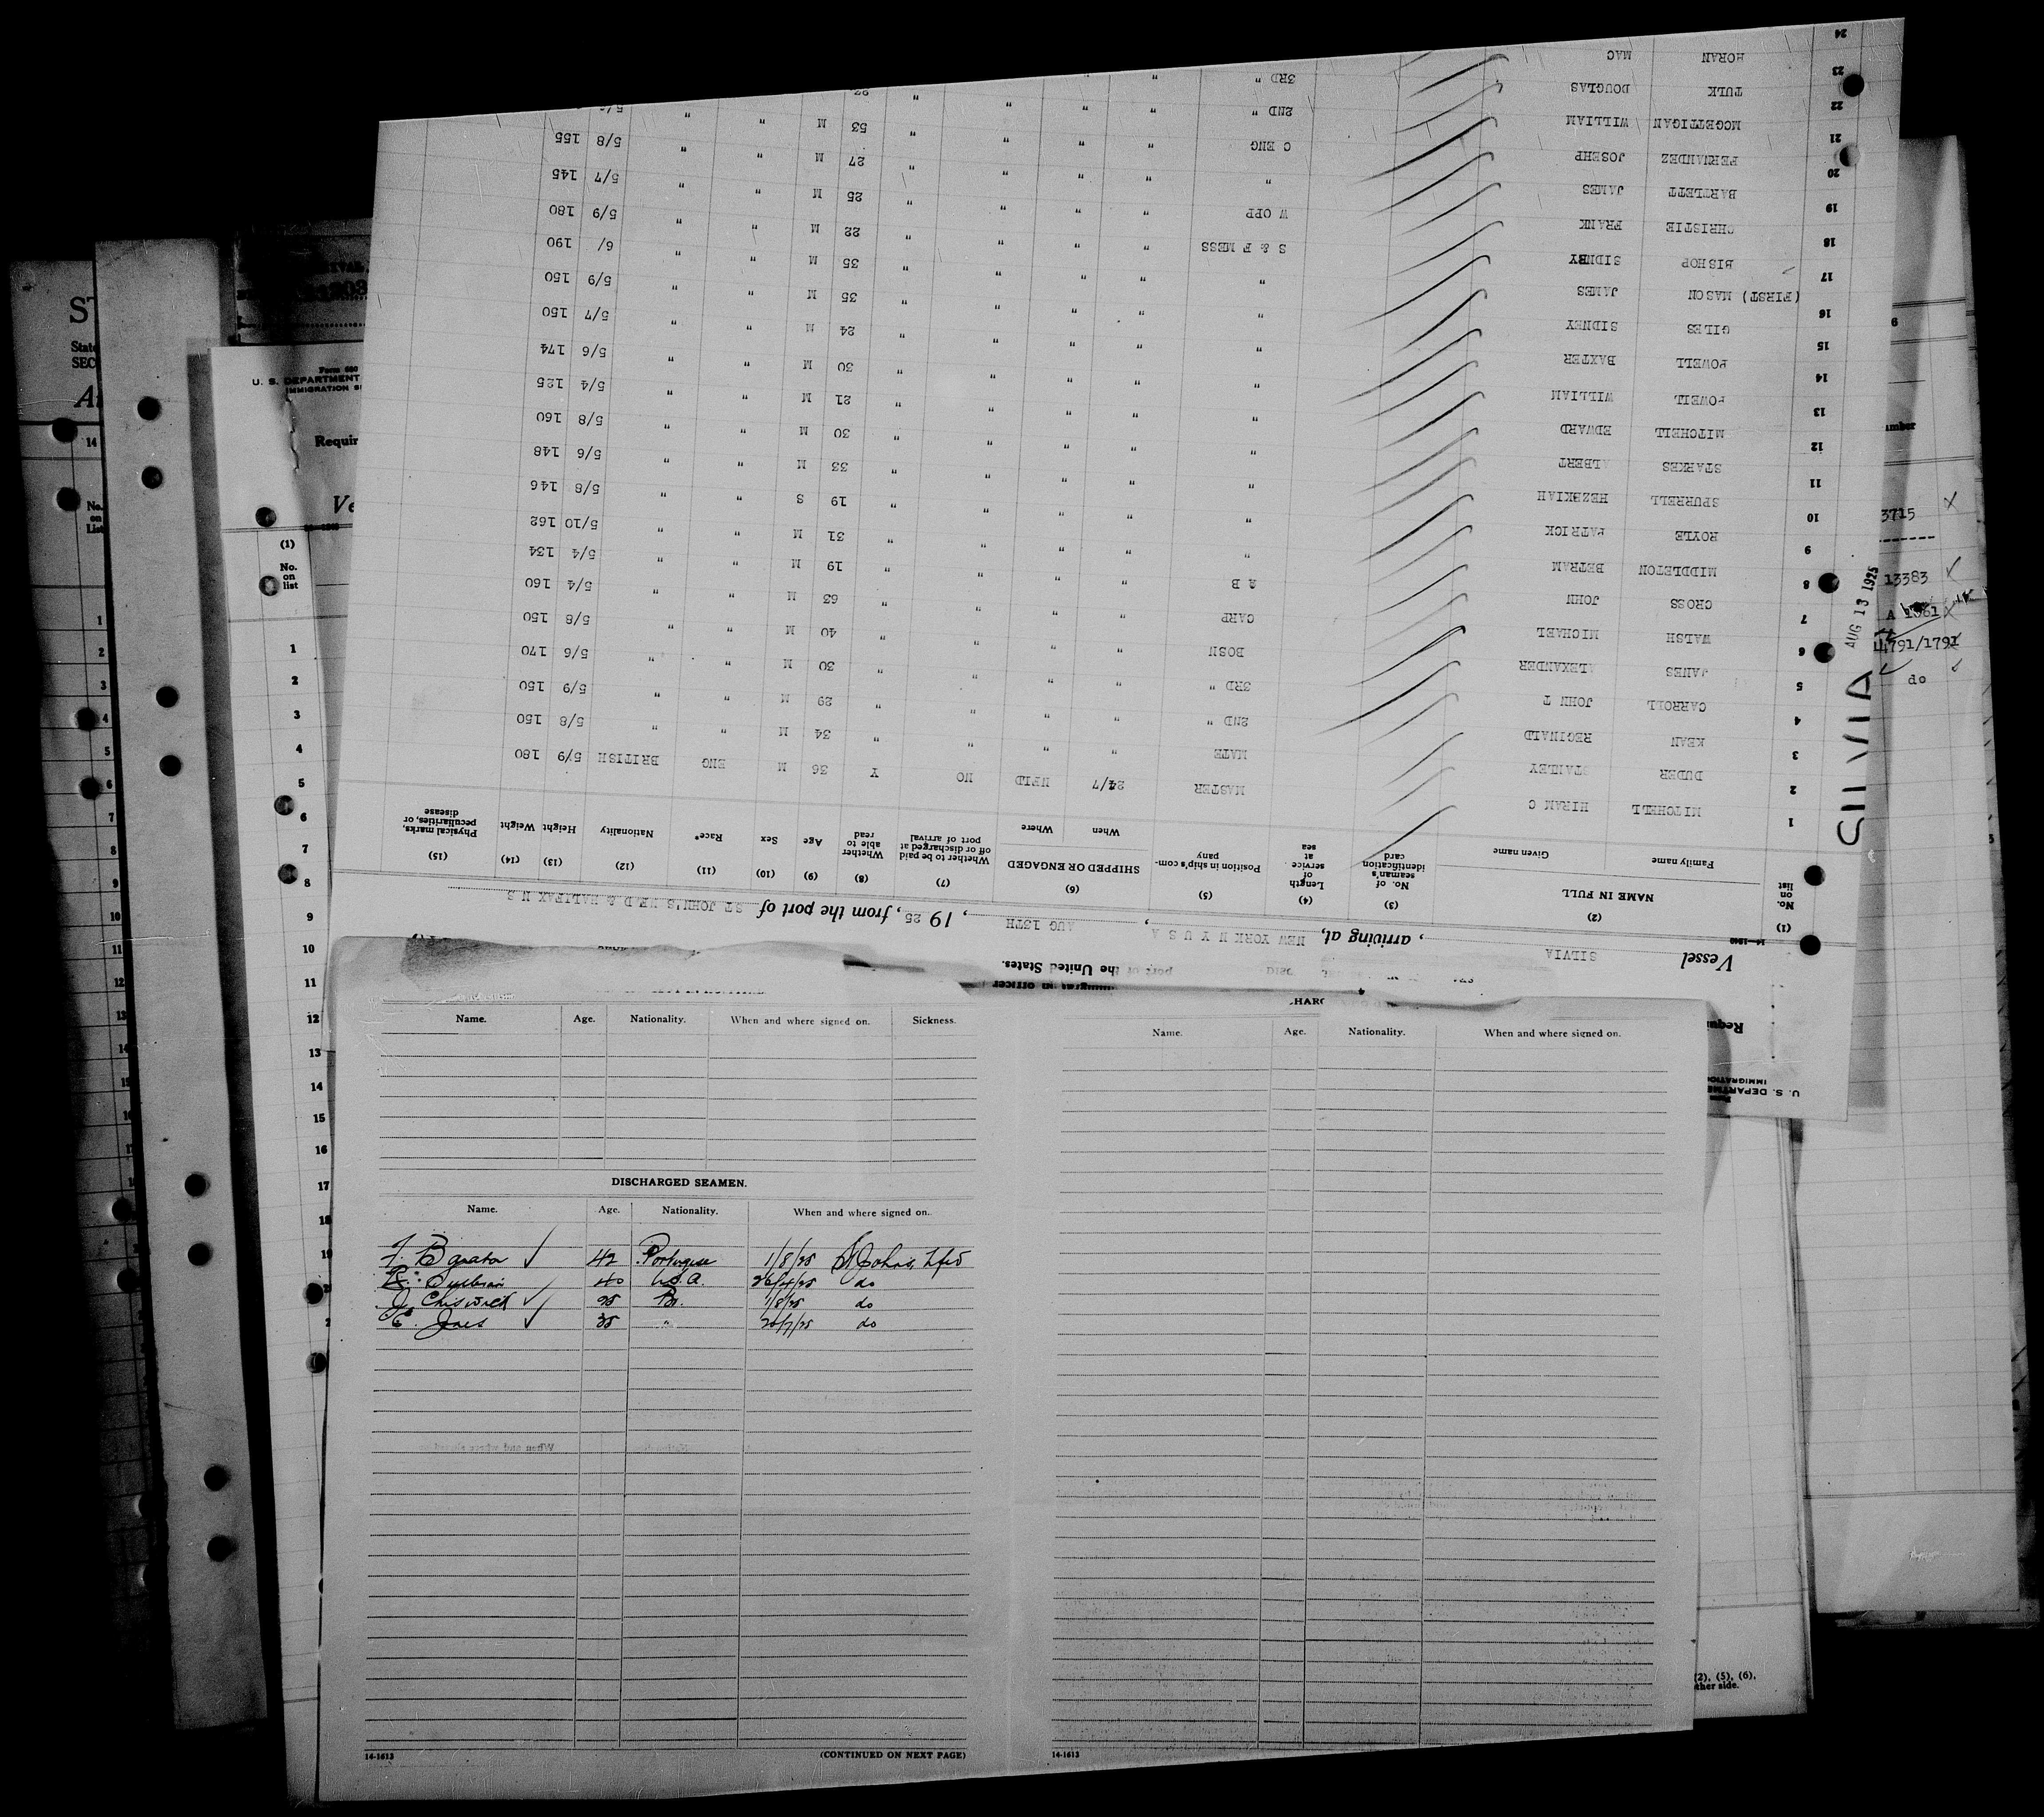 SILVIA
AUG 13 1925
U. S. DEPARTMENT
IMMIGRATION
port of the United States.
Vessel SILVIA, arriving at NEW YORK N Y U S A, AUG 13TH, 1925, from the port of ST JOHN'S NF'D & HALIFAX N S
(1) (2) (3) (4) (5) (6) (7) (8) (9) (10) (11) (12) (13) (14) (15)
No. on list NAME IN FULL No. of seaman's identification card Length of service at sea Position in ship's company SHIPPED OR ENGAGED Whether to be paid off or discharged at port of arrival Whether able to read Age Sex Race* Nationality Height Weight Physical marks, peculiarities, or disease
Family name Given name When Where
1 MITCHELL HIRAM C MASTER 24/7 NFLD NO Y 36 M ENG BRITISH 5/9 180
2 DUDER STANLEY MATE " " " " 34 M " " 5/8 150
3 KEAN REGINALD 2ND " " " " " 29 M " " 5/9 150
4 CARROLL JOHN T 3RD " " " " " 30 M " " 5/6 170
5 JANES ALEXANDER BOSN " " " " 40 M " " 5/8 150
6 WALSH MICHAEL CARP " " " " 63 M " " 5/4 160
7 CROSS JOHN A B " " " " 19 M " " 5/4 134
8 MIDDLETON BETRAM " " " " " 31 M " " 5/10 162
9 ROYLE PATRICK " " " " " 19 S " " 5/8 146
10 SPURRELL HEZEKIAH " " " " " 33 M " " 5/6 148
11 STARKES ALBERT " " " " " 30 M " " 5/8 160
12 MITCHELL EDWARD " " " " " 21 M " " 5/4 125
13 POWELL WILLIAM " " " " " 30 M " " 5/6 174
14 POWELL BAXTER " " " " " 24 M " " 5/7 150
15 GILES SIDNEY " " " " " 35 M " " 5/9 150
16 (FIRST) MASON JAMES " " " " " 35 M " " 6/ 190
17 BISHOP SIDNEY S & F MESS " " " " 22 M " " 5/9 180
18 CHRISTIE FRANK W OPP " " " " 25 M " " 5/7 145
19 BARTLETT JAMES " " " " " 27 M " " 5/8 155
20 FERNANDEZ JOSEHP C ENG " " " " 53 M " "
21 MCGETTIGAN WILLIAM 2ND " " " " "
22 TULK DOUGLAS 3RD " "
23 HORAN MAC
24
Form 680
U. S. DEPARTMENT
Vessel
(1)
No. on list
1
2
3
4
5
6
7
8
9
10
11
12
13
14
15
16
17
18
19
3715
13383
4791/1791
do
Name. Age. Nationality. When and where signed on. Sickness.
DISCHARGED SEAMEN.
Name. Age. Nationality. When and where signed on.
42 Portugese 1/8/25 St Johns, Nfld
40 U.S.A. do
J. Chiswick 25 Br. 1/8/25 do
Jones 35 " do
14-1613 (CONTINUED ON NEXT PAGE)
Name. Age. Nationality. When and where signed on.
14-1613
(2), (5), (6),
other side.